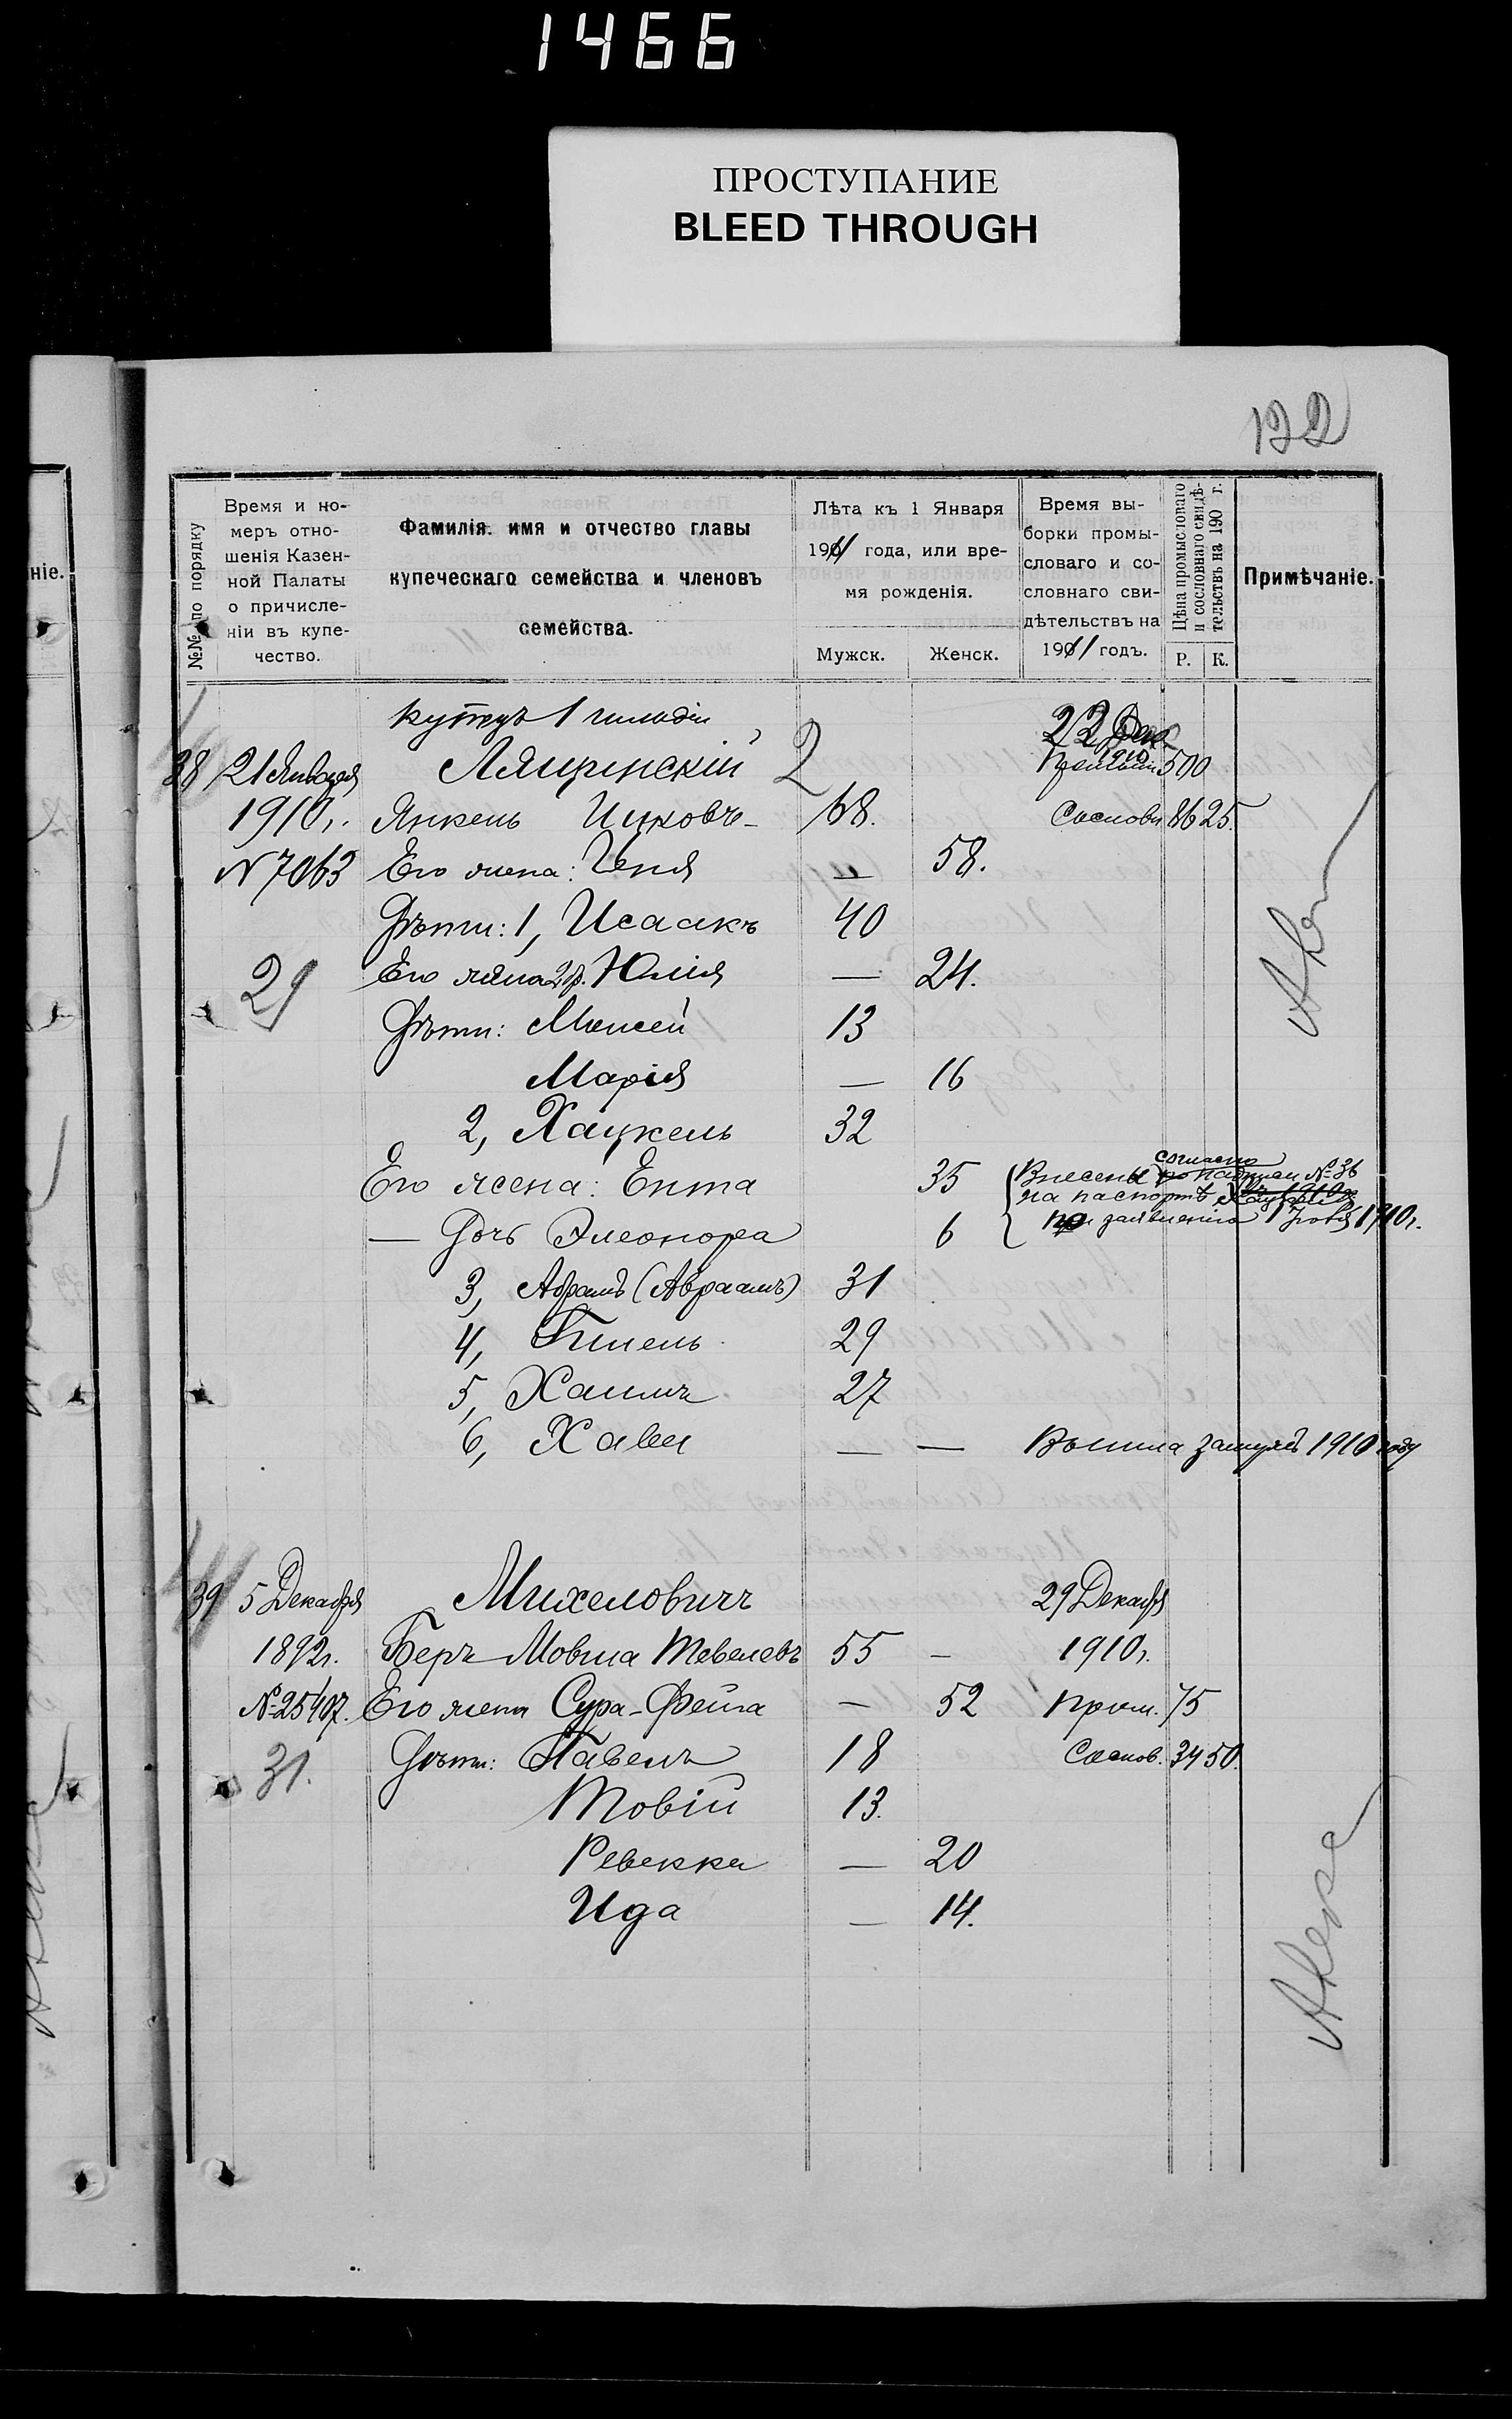 1466
ПРОСТУПАНИЕ
BLEED THROUGH
122
ніе.
№№ по порядку
Время и но-
меръ отно-
шенія Казен-
ной Палаты
о причисле-
ніи въ купе-
чество.
Фамилія. имя и отчество главы
купеческаго семейства и членовъ
семейства.
Лѣта къ 1 Января
1911 года, или вре-
мя рожденія.
Мужск. Женск.
Время вы-
борки промы-
словаго и со-
словнаго сви-
дѣтельствъ на
1911 годъ.
Цѣна промысловаго
и сословнаго свидѣ-
тельствъ на 190 г.
Р. К.
Примѣчаніе.
купецъ 1 гильдіи
38 21 Января Лящинскій 2 22 Дек 1910 500
1910г. Янкель Ицковъ 68. Сословн 86 25.
N 7063 Его жена: Геня — 58.
Дѣти: 1, Исаакъ 40
29 Его жена 2 б. Юлія — 24.
Дѣти: Моисей 13
Марія — 16
2, Хацкель 32
Его жена: Ента 35 Внесены согласно надписи № 36
на паспортѣ
— Дочь Элеонора 6 заявленію 1910г.
3, Абрамъ (Авраамъ) 31
4, Гилель 29
5, Хаимъ 27
6, Хава — — Вышла замужъ 1910 году
39 5 Декабря Михеловичъ 29 Декабря
1892г. Беръ Мовша Тевелевъ 55 — 1910г.
№ 25407. Его жена Сура-Фейга — 52 Пром. 75
31. Дѣти: Павелъ 18 Сослов. 34 50.
Товій 13.
Ревекка — 20
Ида — 14.